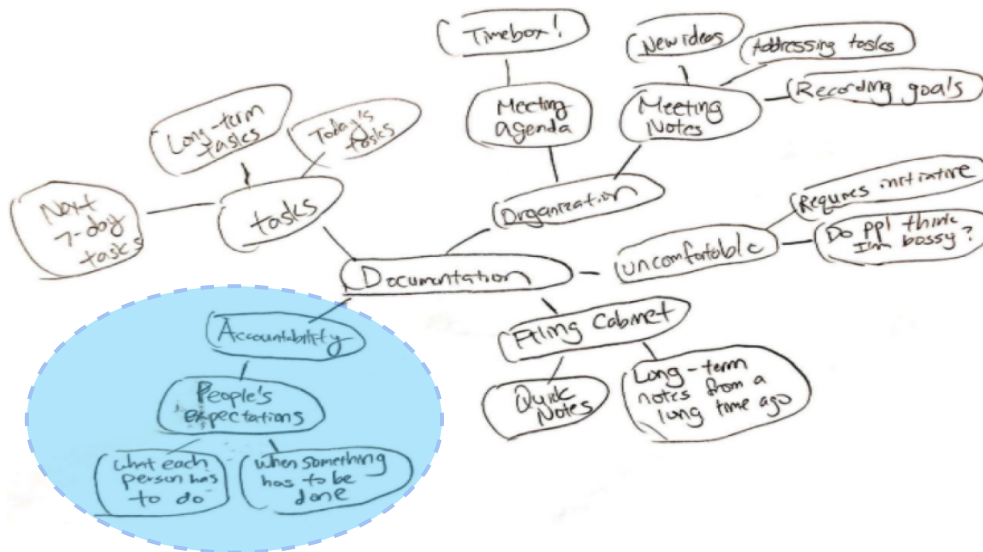 Timebox!
New ideas
Addressing tasks
Recording goals
Meeting
agenda
Meeting
Notes
Long-term
tasks
Today's
tasks
Next
7-day
tasks
tasks
Organization
Requires initiative
Do ppl think
I'm bossy?
Uncomfortable
Documentation
Accountability
Filing Cabinet
People's
expectations
Quick
Notes
Long-term
notes from a
long time ago
what each
person has
to do
when something
has to be
done